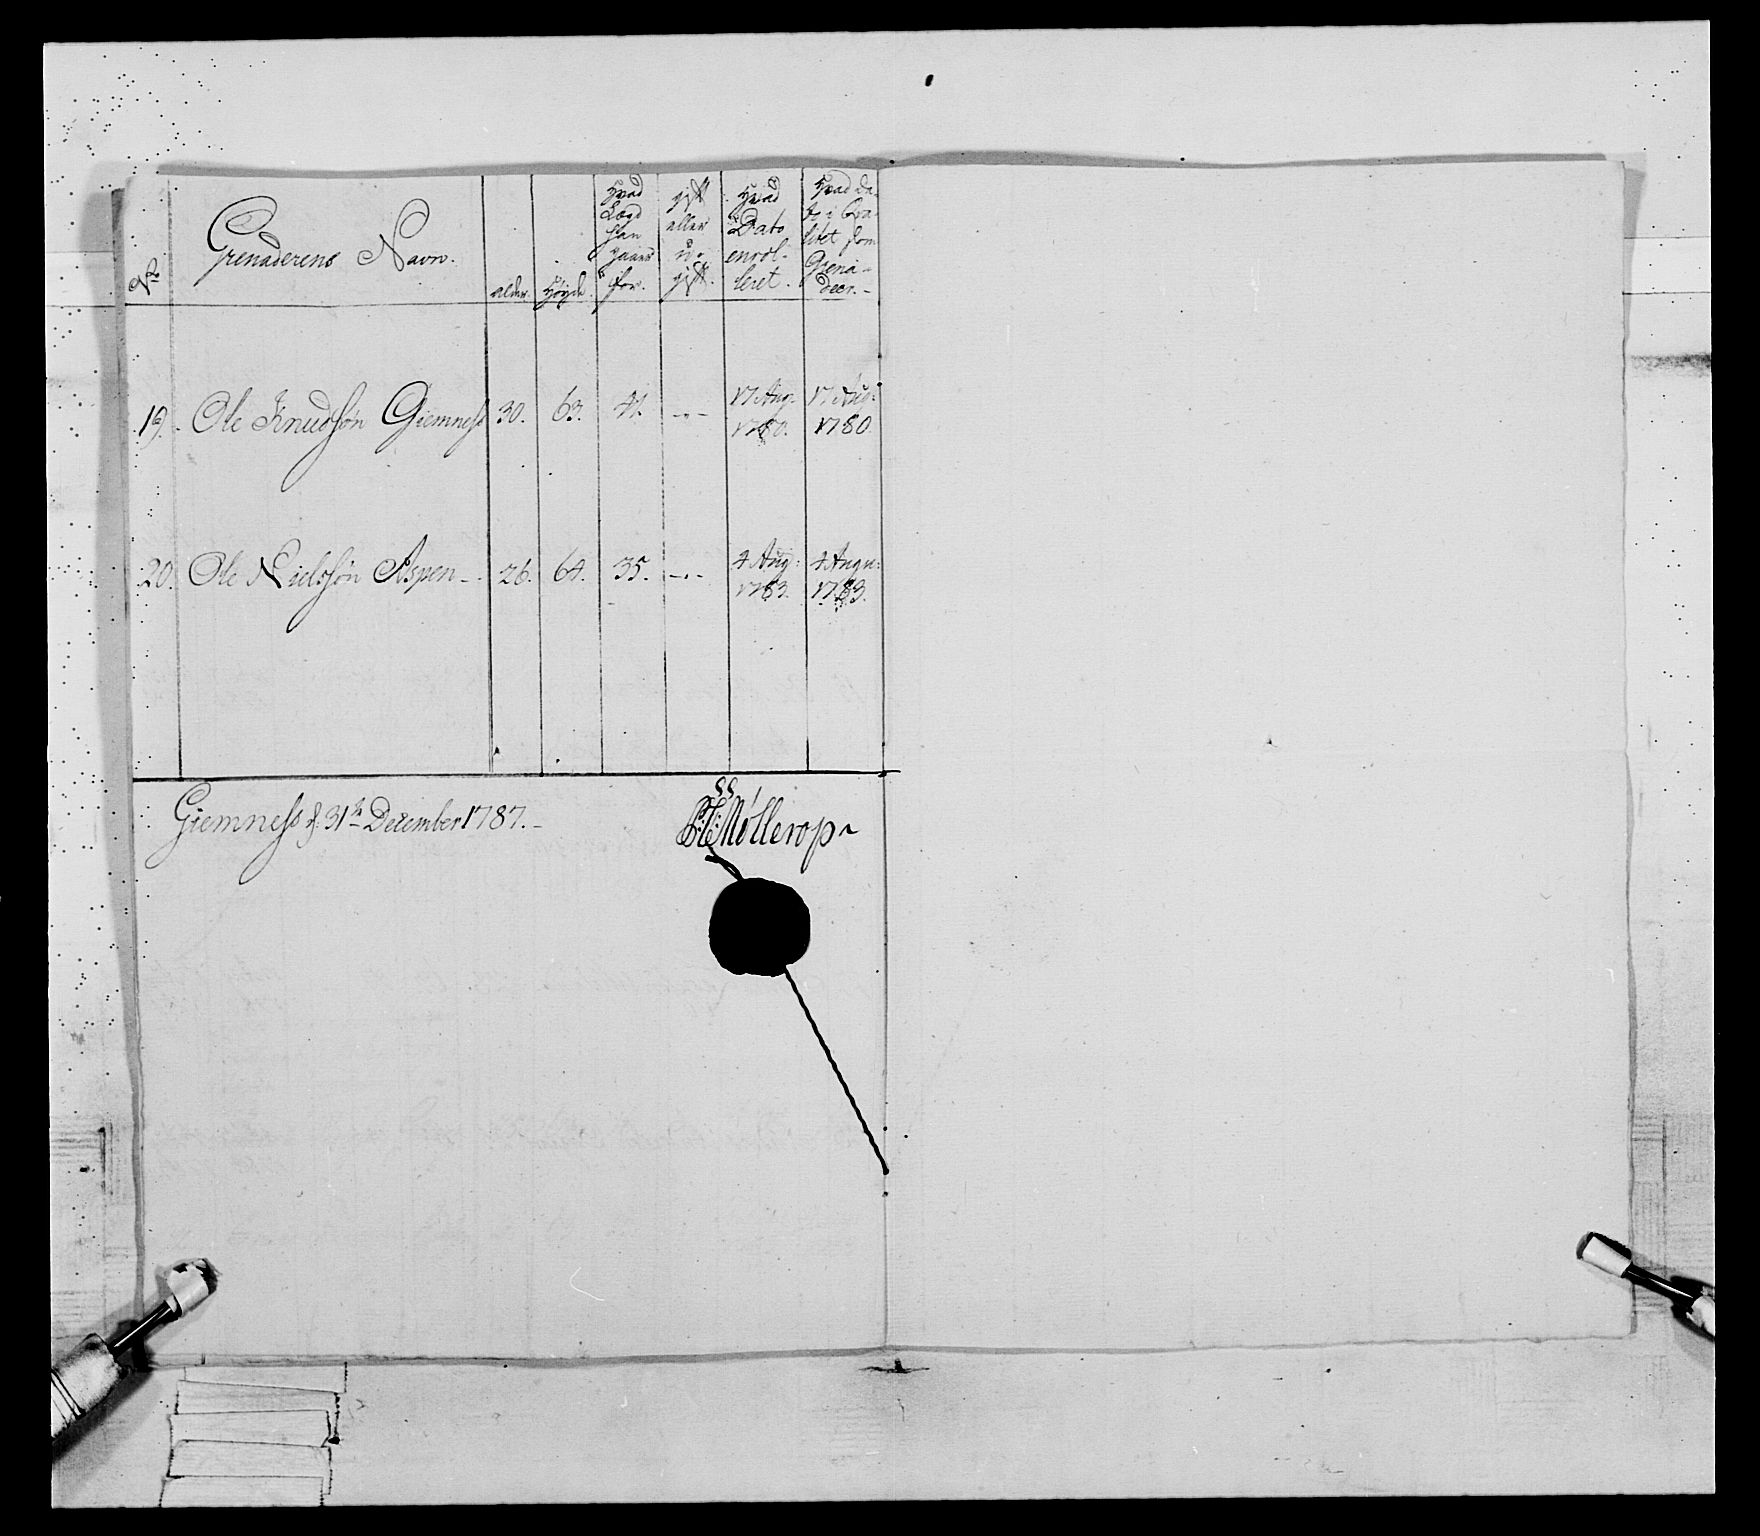 No
Grenaderens Navn.
alder.
Höyde.
Hvad
Lægd
han
for.
gift
eller
u-
gift.
Hvad
Dato
enrol-
leret.
Hvad Da-
to i Qva-
litet som
Grena-
deer.-
19. Ole Knudsøn Giemness 30. 63. 41. -.- 17 Aug: 1780. 17 Aug: 1780.
20. Ole Nielssøn Aspen -. 26. 64. 35. -.- 4 Aug: 1783. 4 Augu: 1783.
Giemness d. 31te December 1787.-
Møllerop